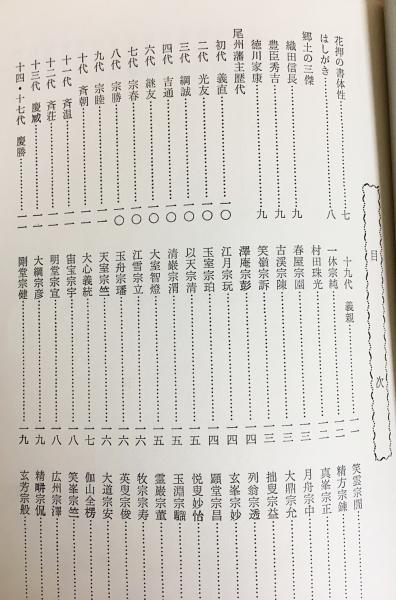 目次
花押の書体性………七
はしがき………八
郷土の三傑
織田信長………九
豊臣秀吉………九
徳川家康………九
尾州藩主歴代
初代 義直………一〇
二代 光友………一〇
三代 綱誠………一〇
四代 吉通………一〇
六代 継友………一〇
七代 宗春………一〇
八代 宗勝………一〇
九代 宗睦………一一
十代 斉朝………一一
十一代 斉温………一一
十二代 斉荘………一一
十三代 慶臧………一一
十四・十七代 慶勝………一一
十九代 義親………一一
一休宗純………一二
村田珠光………一二
春屋宗園………一三
古渓宗陳………一三
笑嶺宗訢………一三
澤庵宗彭………一四
江月宗玩………一四
玉室宗珀………一四
以天宗清………一五
清巌宗渭………一五
大室智燈………一五
江雪宗立………一六
玉舟宗璠………一六
天室宗竺………一六
大心義統………一七
宙宝宗宇………一八
明堂宗宣………一八
大綱宗彦………一九
剛堂宗健………一九
笑雲宗誾………
精方宗錬………
真峯宗正………
月舟宗中………
大鼎宗允………
拙叟宗益………
列翁宗透………
玄峯宗妙………
顕堂宗昌………
悦叟妙怡………
玉淵宗騮………
霊巌宗董………
牧宗宗寿………
英叟宗俊………
大道宗安………
伽山全楞………
笑峯宗竺………
広州宗澤………
精疇宗侃………
玄芳宗般………